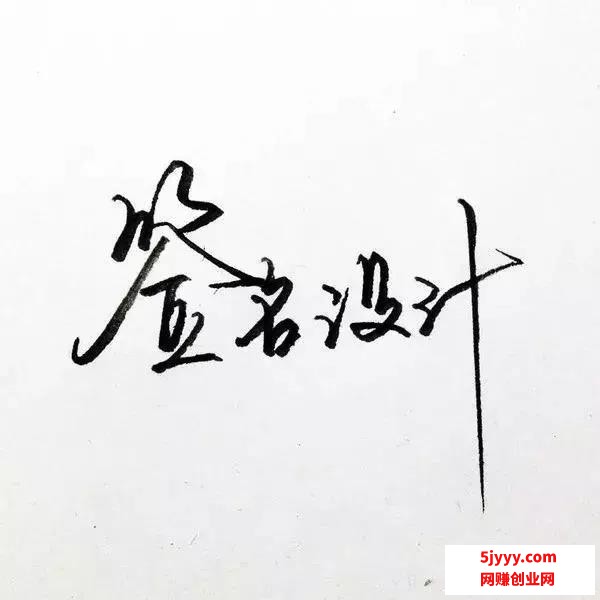 签名设计
5jyyy.com
网赚创业网